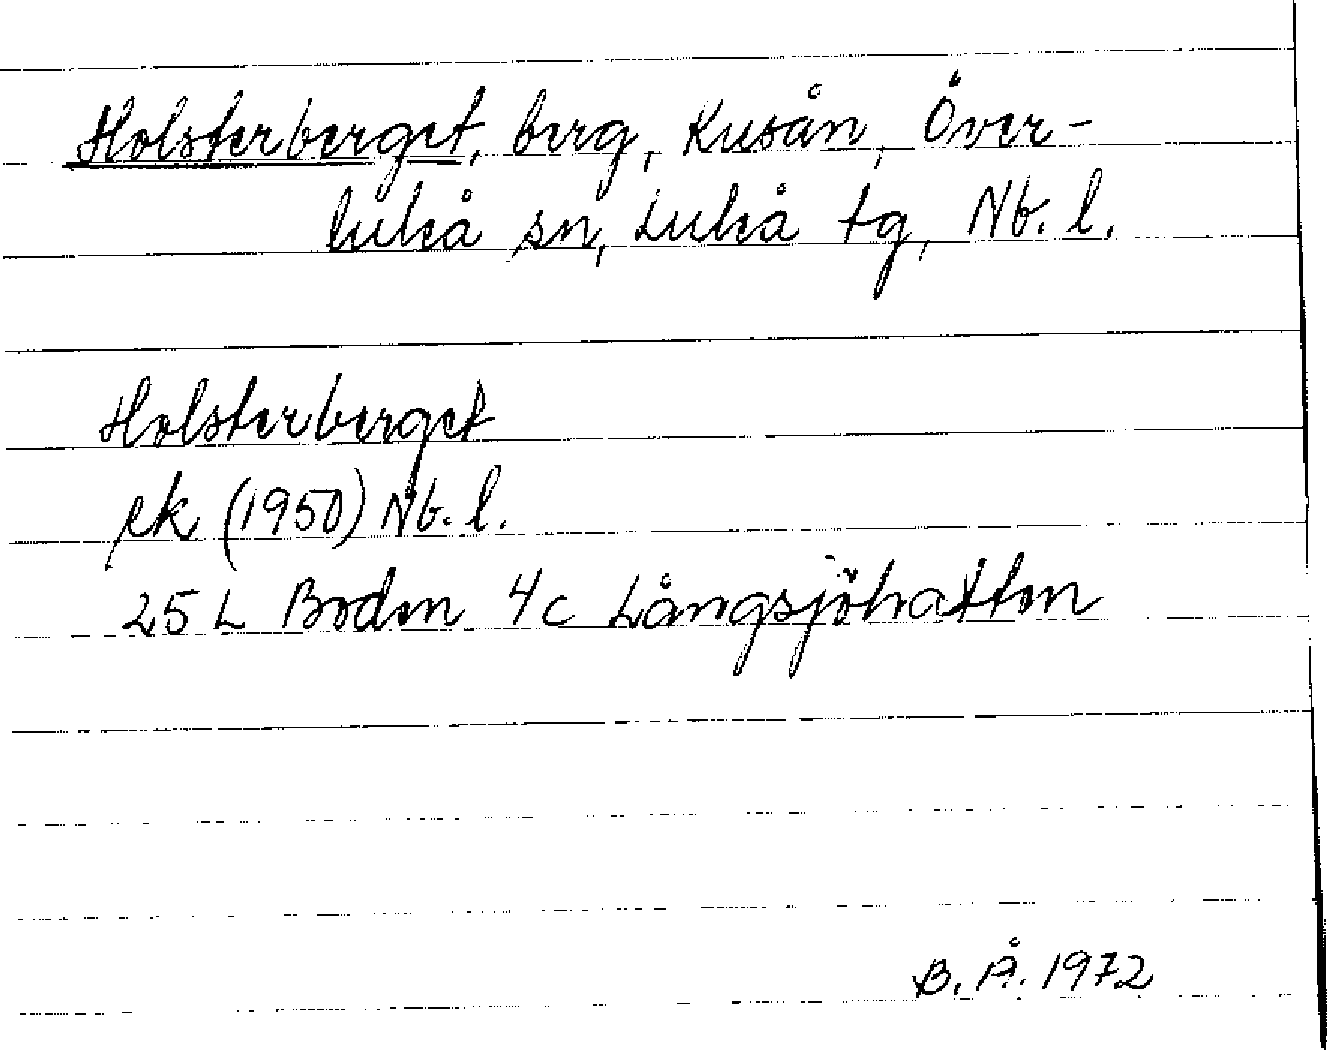 Holsterberget, berg, Kusån, Över-
luleå sn, Luleå tg, Nb. l.
Holsterberget
ek (1950) Nb. l.
25 L Boden 4c Långsjöhatten
B. Å. 1972